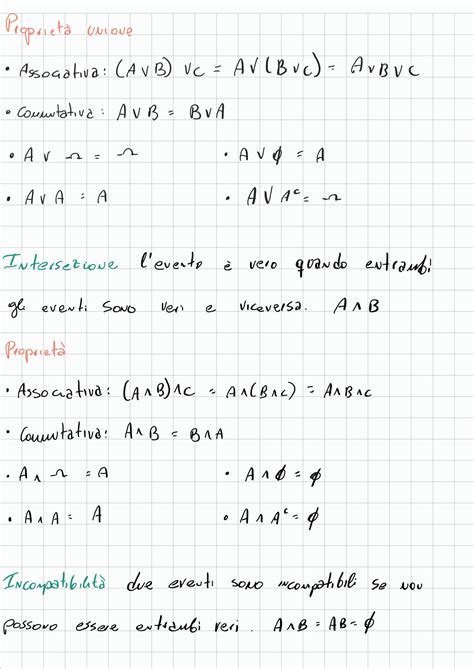 Proprietà unione
• Associativa: (A∨B) ∨C = A∨(B∨C) = A∨B∨C
• Commutativa: A∨B = B∨A
• A∨ Ω = Ω • A∨∅ = A
• A∨A = A • A∨Aᶜ = Ω
Intersezione l'evento è vero quando entrambi
gli eventi sono veri e viceversa. A∧B
Proprietà
• Associativa: (A∧B)∧C = A∧(B∧C) = A∧B∧C
• Commutativa: A∧B = B∧A
• A∧ Ω = A • A∧∅ = ∅
• A∧A = A • A∧Aᶜ = ∅
Incompatibilità due eventi sono incompatibili se non
possono essere entrambi veri. A∧B = AB = ∅